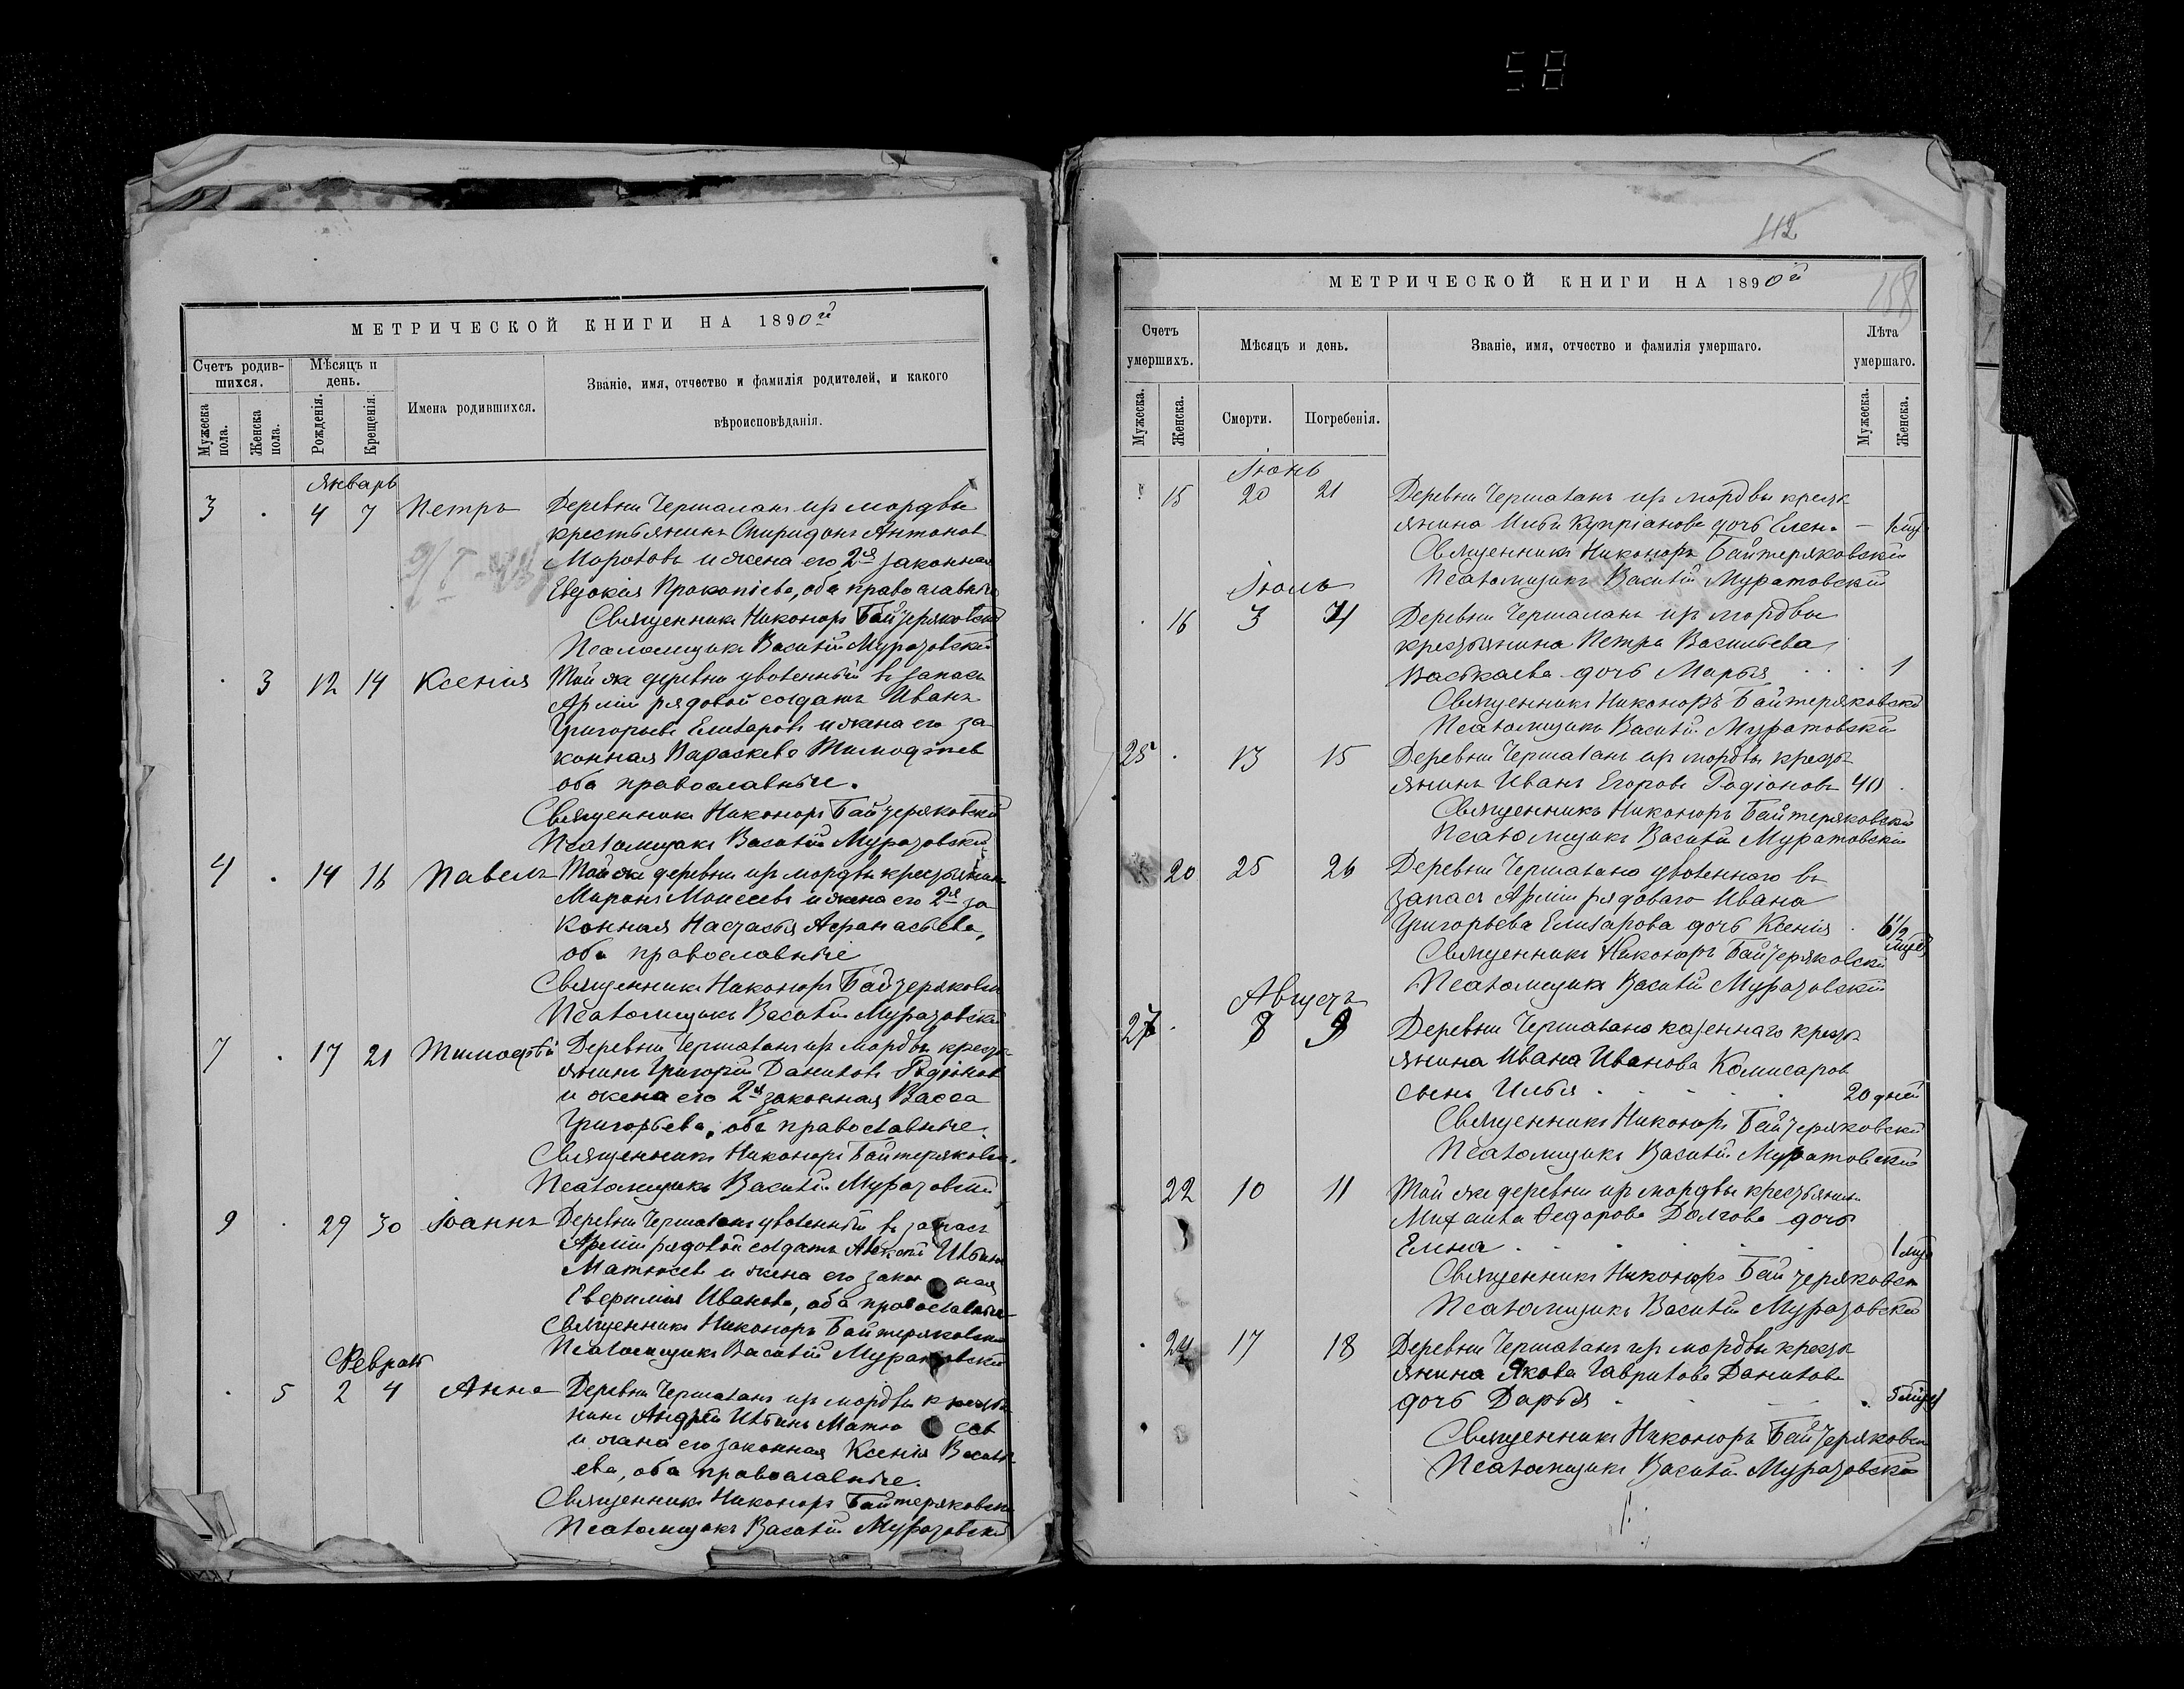 58
МЕТРИЧЕСКОЙ КНИГИ НА 1890й
Счетъ родив-
шихся.
Мѣсяцъ и
день.
Имена родившихся.
Званіе, имя, отчество и фамилія родителей, и какого
вѣроисповѣданія.
Мужеска
пола.
Женска
пола.
Рожденія.
Крещенія.
Январь
3 . 4 7 Петръ Деревни изъ мордвы
крестьянинъ Спиридонъ Антонов
и жена его 2я законная
Евдокія Прокопіева, оба православные
Священникъ Никоноръ Байтеряковскій
Псаломщикъ Василій Муратовскій
. 3 12 14 Ксенія Той же деревни уволенный въ запасъ
Арміи рядовой солдатъ Иванъ
Григорьевъ Елизаровъ и жена его за
конная Параскева Тимофѣев
оба православные.
Священникъ Никоноръ Байтеряковскій
Псаломщикъ Василій Муратовскій
4 . 14 16 Павелъ Той же деревни изъ мордвы крестьянинъ
Миронъ Моисеевъ и жена его 2я за
конная Настасья Афанасьева,
оба православные
Священникъ Никоноръ Байтеряковскій
Псаломщикъ Василій Муратовскій
7 . 17 21 Тимофѣй Деревни изъ мордвы кресть
янинъ Григорій Даниловъ Родіонов
и жена его 2я законная Васса
Григорьева, оба православные.
Священникъ Никоноръ Байтеряковскій
Псаломщикъ Василій Муратовскій
9 . 29 30 Іоаннъ Деревни уволенный въ запасъ
Арміи рядовой солдатъ Ильинъ
и жена его закон ная
Евфимія Иванова, оба православные
Священникъ Никоноръ Байтеряковскій
Псаломщикъ Василій Муратовскій
Феврал
. 5 2 4 Анна Деревни изъ мордвы крестья
нинъ Андрей Ильинъ
и жена его законная Ксенія Василь
ева, оба православные.
Священникъ Никоноръ Байтеряковскій
Псаломщикъ Василій Муратовскій
112
158
МЕТРИЧЕСКОЙ КНИГИ НА 1890й
Счетъ
умершихъ.
Мѣсяцъ и день.
Званіе, имя, отчество и фамилія умершаго.
Лѣта
умершаго.
Мужеска.
Женска.
Смерти.
Погребенія.
Мужеска.
Женска.
Іюнь
. 15 20 21 Деревни изъ мордвы кресть
янина Ильи Купріанова дочь Елена
Священникъ Никоноръ Байтеряковскій
Псаломщикъ Василій Муратовскій
Іюль
. 16 3 4 Деревни изъ мордвы
крестьянина Петра Васильева
Васькаева дочь Марья . . . 1
Священникъ Никоноръ Байтеряковскій
Псаломщикъ Василій Муратовскій
25 . 13 15 Деревни изъ мордвы кресть
янинъ Иванъ Егоровъ Родіоновъ 40 .
Священникъ Никоноръ Байтеряковскій
Псаломщикъ Василій Муратовскій
20 25 26 Деревни уволеннаго въ
запасъ Арміи рядоваго Ивана
Григорьева Елизарова дочь Ксенія . 6 1/2
Священникъ Никоноръ Байтеряковскій
Псаломщикъ Василій Муратовскій
Августъ
27 . 8 9 Деревни казеннаго кресть
янина Ивана Иванова Комисаров
сынъ Илья 20 дней
Священникъ Никоноръ Байтеряковскій
Псаломщикъ Василій Муратовскій
22 10 11 Той же деревни изъ мордвы крестьянина
Михаила Ѳедорова Долгова дочь
Елена
Священникъ Никоноръ Байтеряковскій
Псаломщикъ Василій Муратовскій
. 24 17 18 Деревни изъ мордвы кресть
янина Якова Гаврилова Данилова
дочь Дарья
Священникъ Никоноръ Байтеряковскій
Псаломщикъ Василій Муратовскій